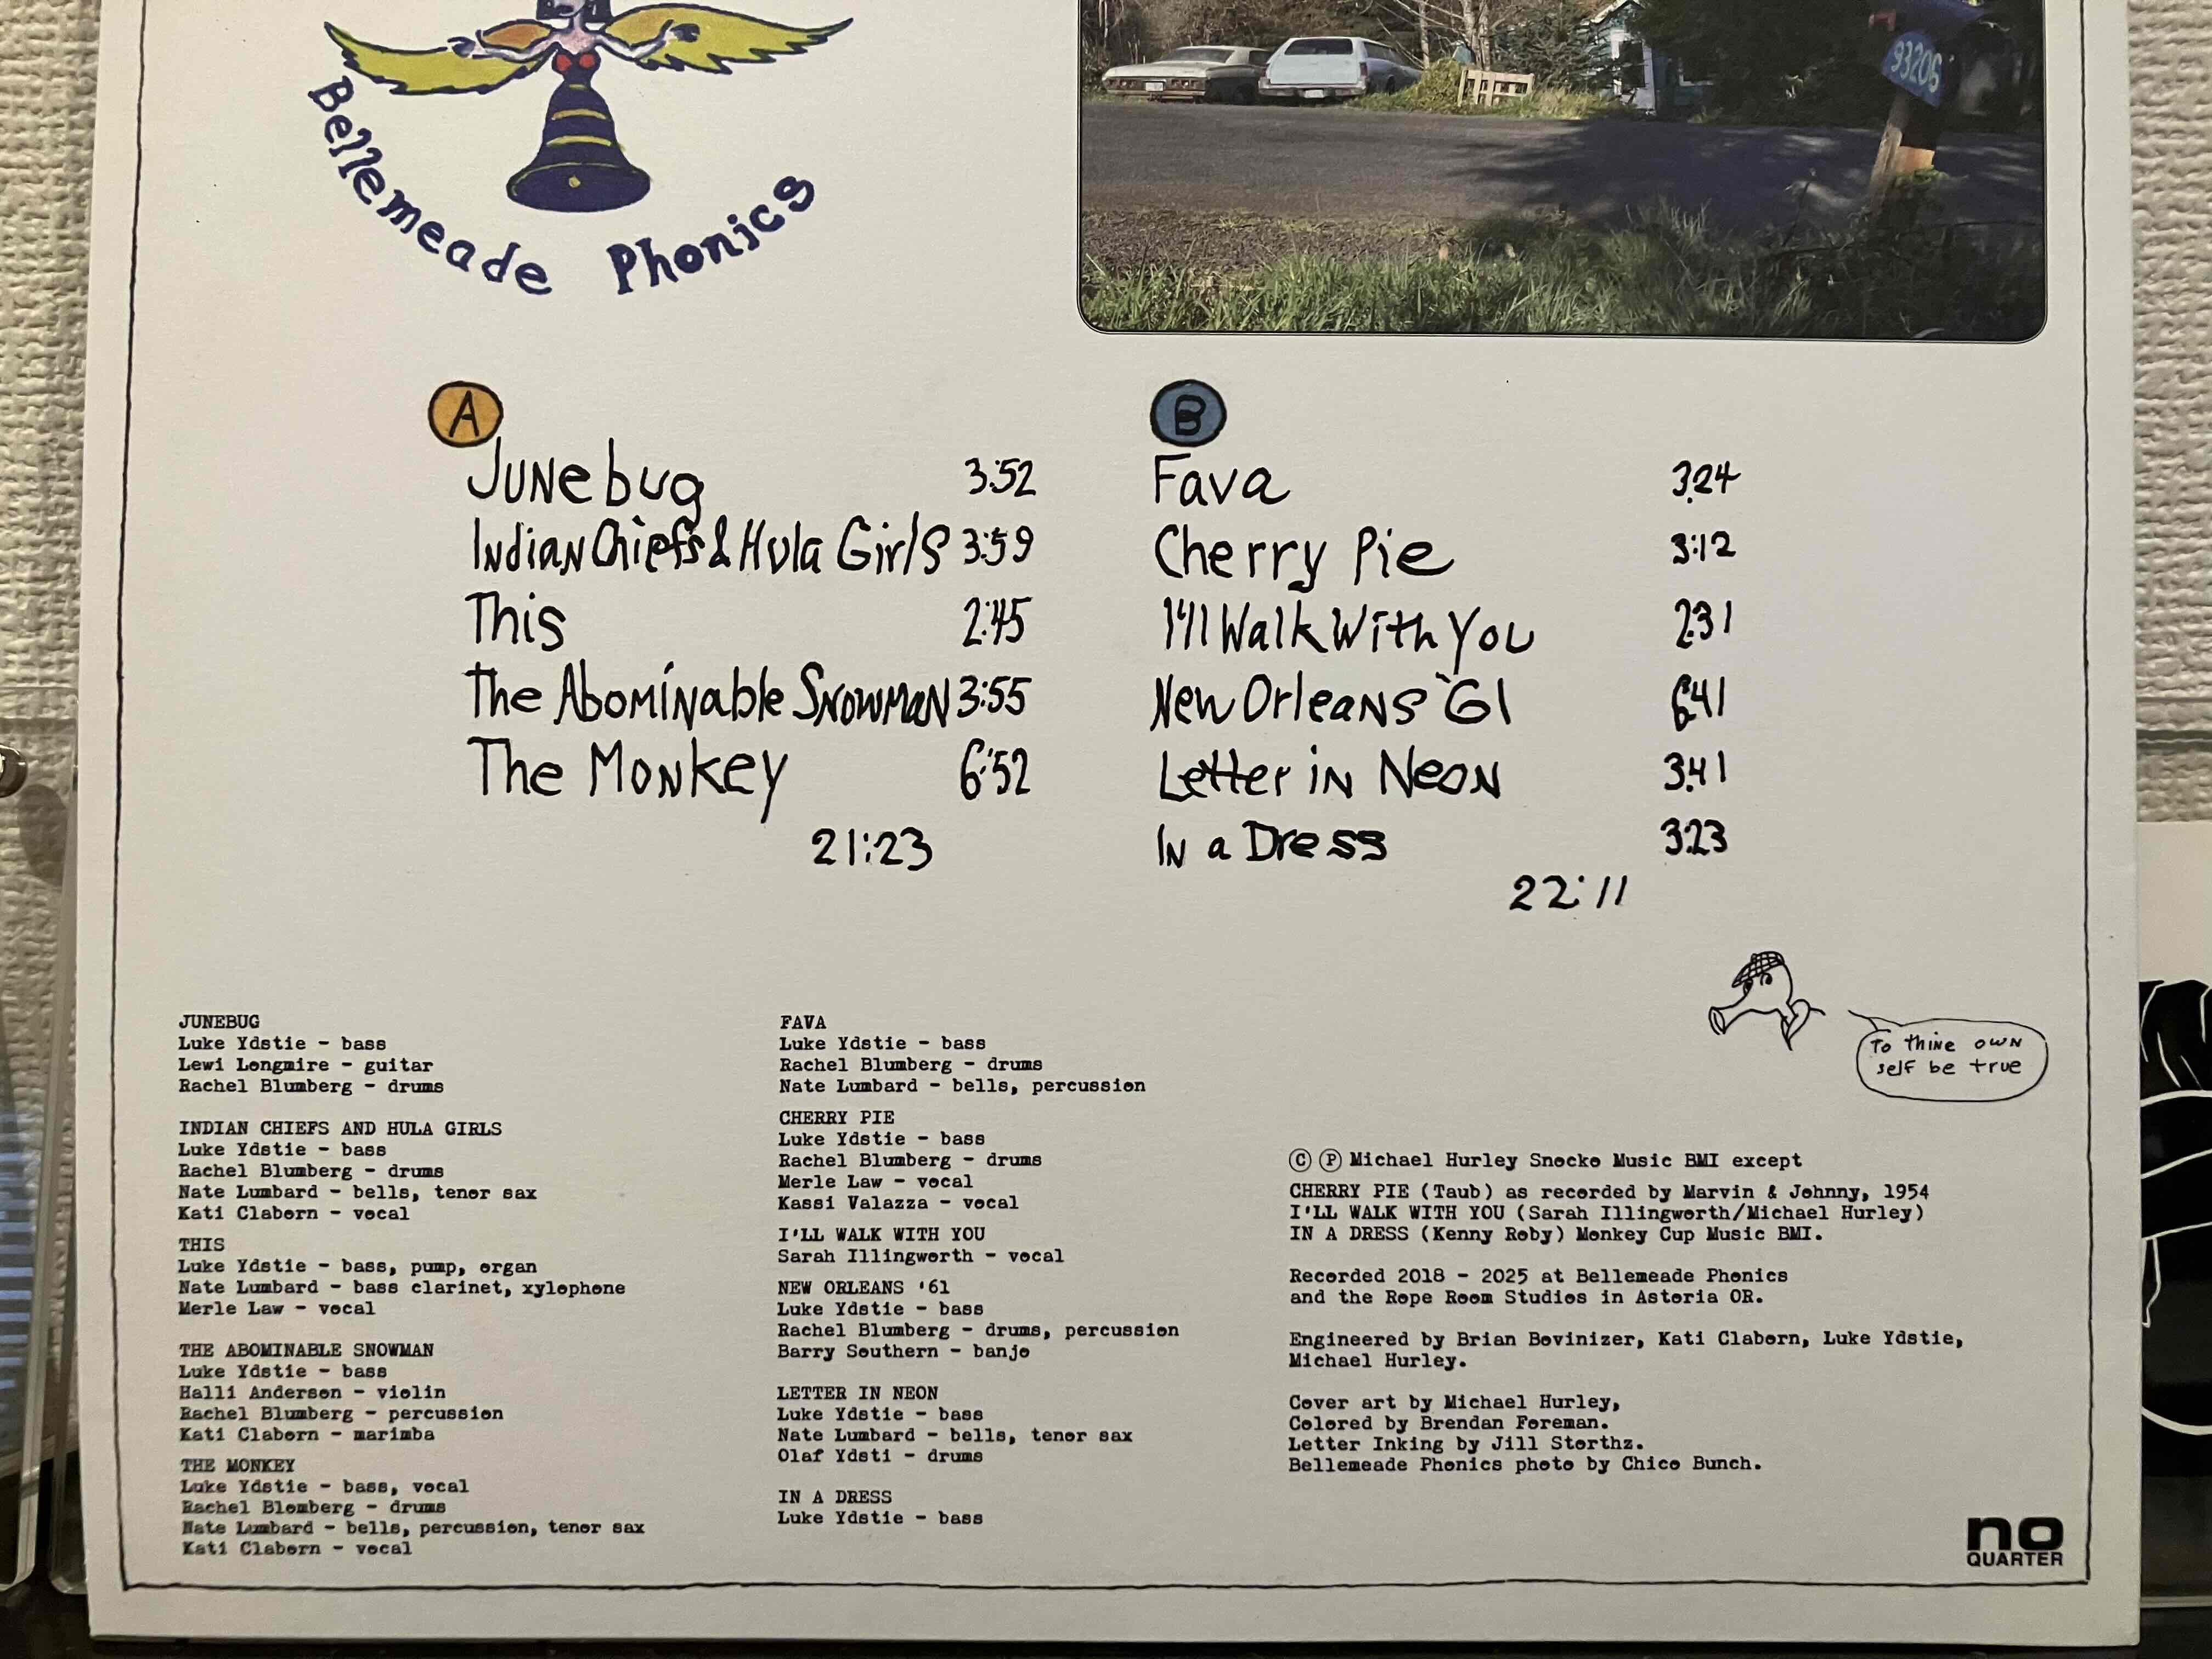 Bellemeade Phonics
93206
A
Junebug 3:52
Indian Chiefs & Hula Girls 3:59
This 2:45
The Abominable Snowman 3:55
The Monkey 6:52
21:23
B
Fava 3:24
Cherry Pie 3:12
I'll Walk With You 2:31
New Orleans '61 6:41
Letter in Neon 3:41
In a Dress 3:23
22:11
To thine own
self be true
JUNEBUG
Luke Ydstie - bass
Lewi Longmire - guitar
Rachel Blumberg - drums
INDIAN CHIEFS AND HULA GIRLS
Luke Ydstie - bass
Rachel Blumberg - drums
Nate Lumbard - bells, tenor sax
Kati Claborn - vocal
THIS
Luke Ydstie - bass, pump, organ
Nate Lumbard - bass clarinet, xylophone
Merle Law - vocal
THE ABOMINABLE SNOWMAN
Luke Ydstie - bass
Halli Anderson - violin
Rachel Blumberg - percussion
Kati Claborn - marimba
THE MONKEY
Luke Ydstie - bass, vocal
Rachel Blomberg - drums
Nate Lumbard - bells, percussion, tenor sax
Kati Claborn - vocal
FAVA
Luke Ydstie - bass
Rachel Blumberg - drums
Nate Lumbard - bells, percussion
CHERRY PIE
Luke Ydstie - bass
Rachel Blumberg - drums
Merle Law - vocal
Kassi Valazza - vocal
I'LL WALK WITH YOU
Sarah Illingworth - vocal
NEW ORLEANS '61
Luke Ydstie - bass
Rachel Blumberg - drums, percussion
Barry Southern - banjo
LETTER IN NEON
Luke Ydstie - bass
Nate Lumbard - bells, tenor sax
Olaf Ydsti - drums
IN A DRESS
Luke Ydstie - bass
Ⓒ Ⓟ Michael Hurley Snocko Music BMI except
CHERRY PIE (Taub) as recorded by Marvin & Johnny, 1954
I'LL WALK WITH YOU (Sarah Illingworth/Michael Hurley)
IN A DRESS (Kenny Roby) Monkey Cup Music BMI.
Recorded 2018 - 2025 at Bellemeade Phonics
and the Rope Room Studios in Astoria OR.
Engineered by Brian Bovinizer, Kati Claborn, Luke Ydstie,
Michael Hurley.
Cover art by Michael Hurley,
Colored by Brendan Foreman.
Letter Inking by Jill Storthz.
Bellemeade Phonics photo by Chico Bunch.
no
QUARTER